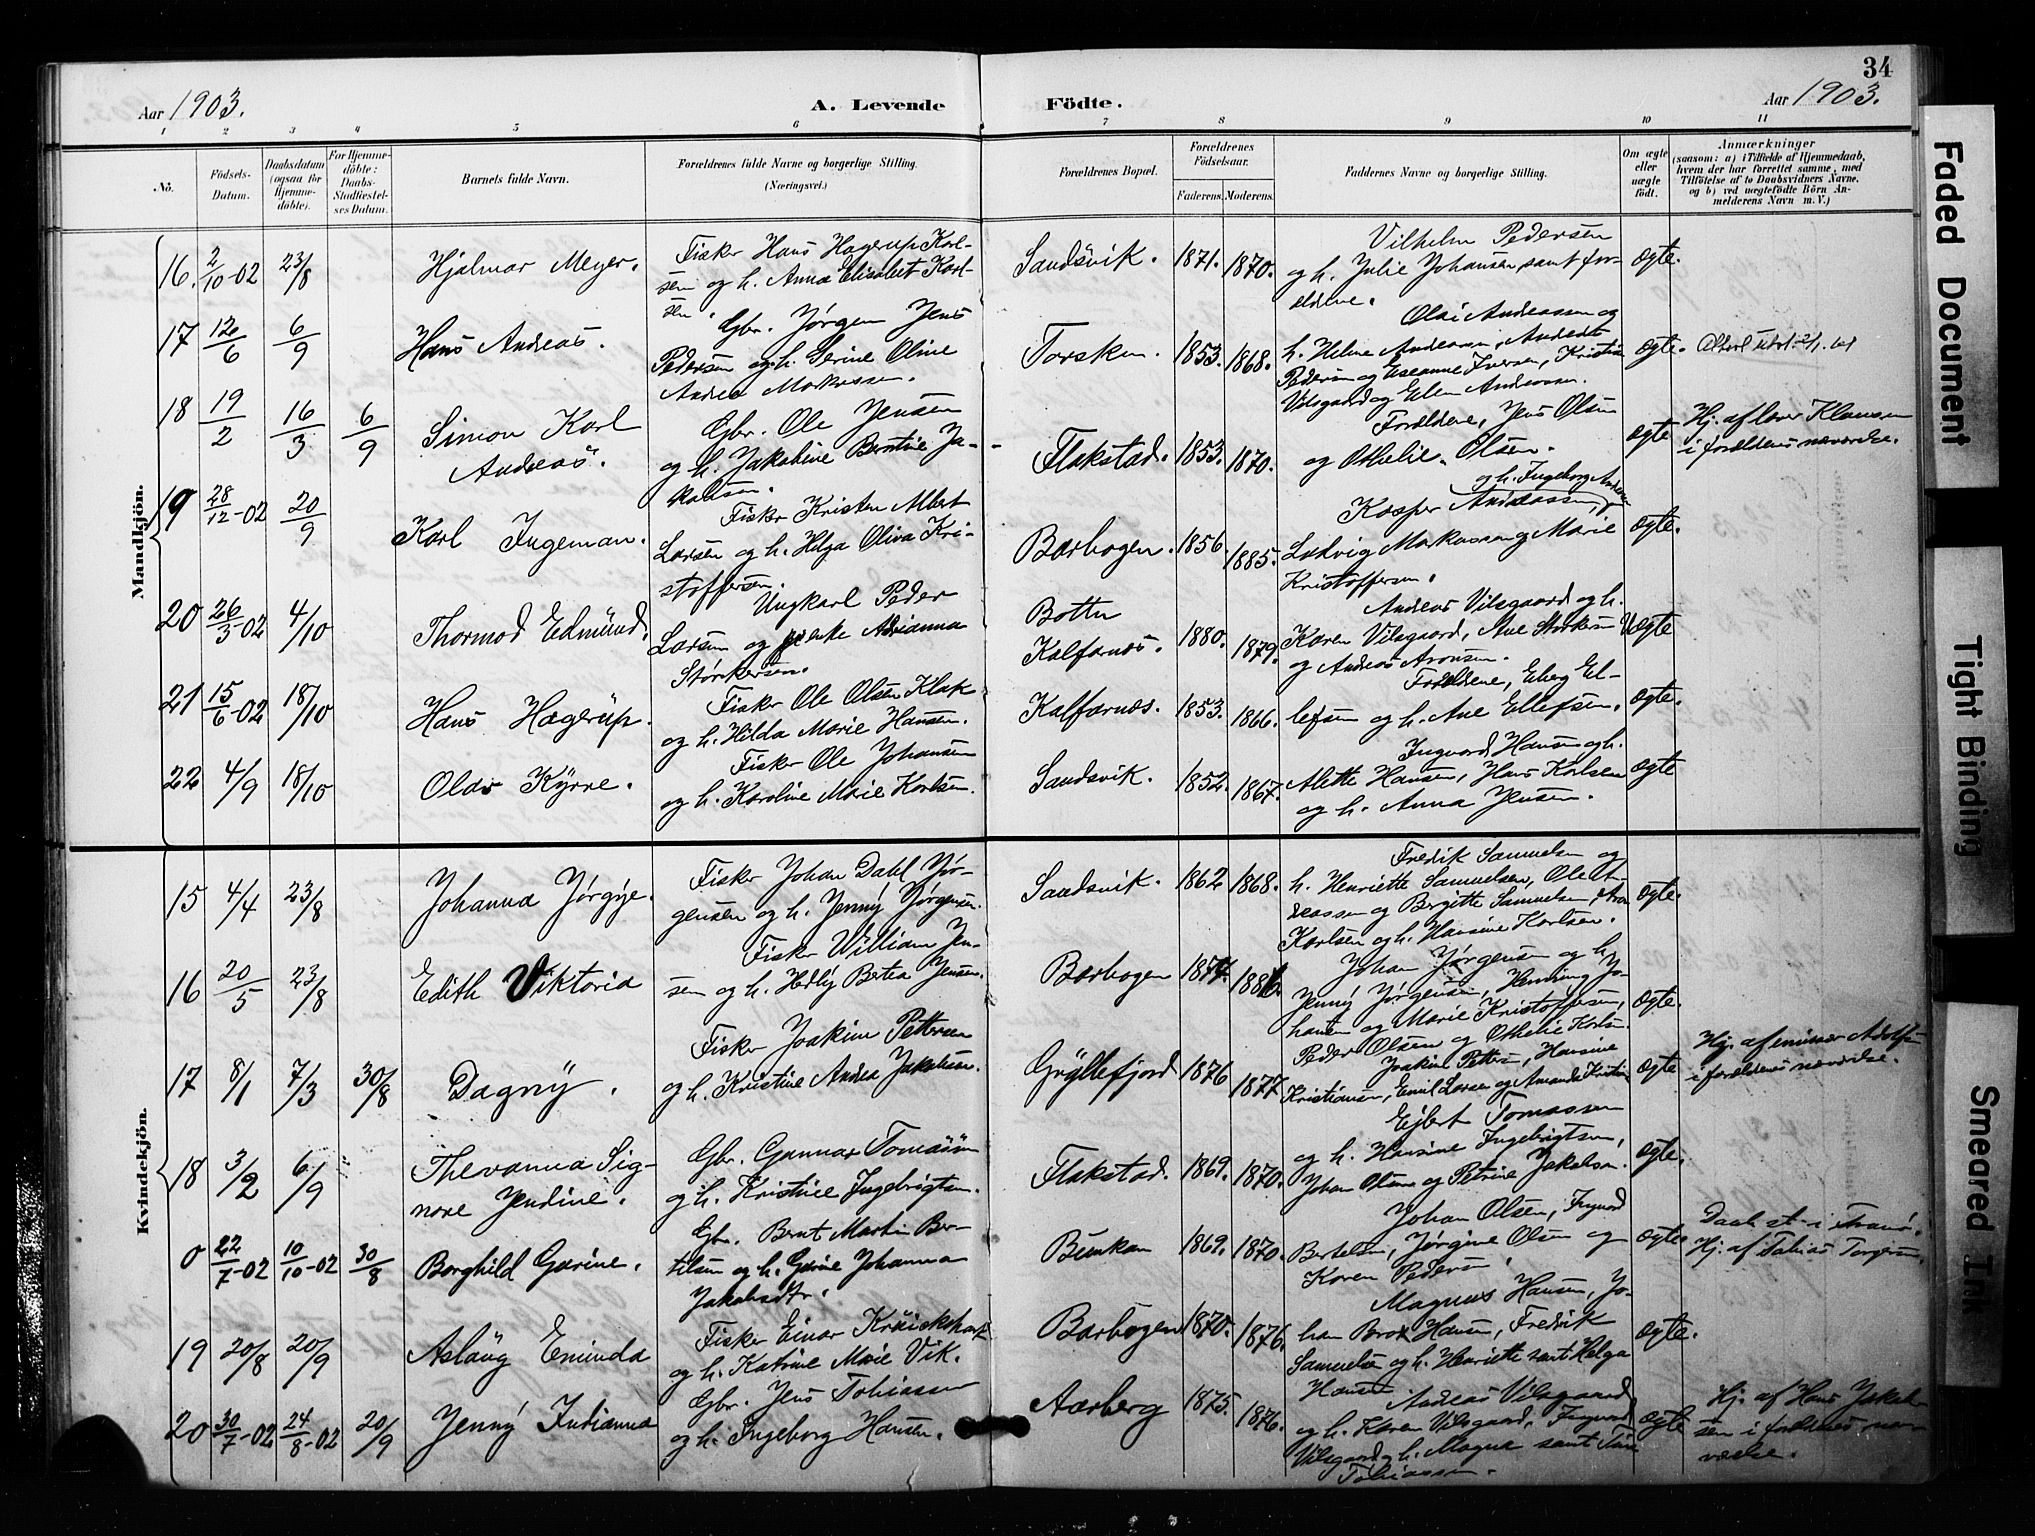 34
Aar 1903.
A. Levende Födte.
Aar 1903.
1 2 3 4 5 6 7 8 9 10 11
No.
Födsels-Datum.
Daabsdatum (ogsaa for Hjemme-döbte).
For Hjemme-döbte: Daabs-Stadfæstel-ses Datum.
Barnets fulde Navn.
Forældrenes fulde Navne og borgerlige Stilling.
(Næringsvei.)
Forældrenes Bopæl.
Forældrenes Födselsaar.
Faderens. Moderens.
Faddernes Navne og borgerlige Stilling.
Om ægte eller uægte födt.
Anmærkninger
(saasom: a) i Tilfælde af Hjemmedaab,
hvem der har forrettet samme, med
Tilföielse af to Daabsvidners Navne,
og b) ved uægtefödte Börn An-
melderens Navn m. V.)
Mandkjön.
16. 2/10-02 23/8 Hjalmar Meyer.
Fisker Hans Hagerup Karl-
sen og h. Anna Elisabet Karl-
sen.
Sandsvik. 1871. 1870.
Vilhelm Pedersen
og h. Julie Johansen samt for-
ældrene.
ægte.
17 12/6 6/9 Hans Andreas.
Gbr. Jørgen Jens
Pedersen og h. Serine Oline
Andrea Markussen.
Torsken. 1853. 1868.
Olai Andreassen og
h. Helene Andreassen, Andreas
Pedersen og Iversen, Kristian
Vilsgaard og Elen Andreassen.
ægte.
18 19/2 16/3 6/9 Simon Karl
Andreas.
Gbr. Ole Jensen
og h. Jakobine Berntine Ja-
kobsen.
Flakstad. 1853. 1870.
Forældrene, Jens Olsen
og Othelie Olsen.
ægte
Hj. af lærer Klausen
i forældrenes nærværelse.
19 28/12-02 20/9 Karl Ingeman.
Fisker Kristen Albert
Larsen og h. Helga Oliva Kri-
stoffersen.
Barbogen. 1856. 1885.
og h. Ingeborg Andreassen
Kasper Andreassen,
Ludvig Markussen og Marie
Kristoffersen.
ægte.
20 26/3-02 4/10 Thormod Edmund.
Ungkarl Peder
Larsen og pike Adrianna
Størkersen.
Botten
Kalfarnes. 1880. 1879.
Andreas Vilsgaard og h.
Karen Vilsgaard, Ane Størkersen
og Andreas Aronsen.
Uægte
21 15/6-02 18/10 Hans Hagerup.
Fisker Ole Olsen Klak
og h. Hilda Marie Hansen.
Kalfarnes. 1853. 1866.
Forældrene, Eberg El-
lefsen og h. Ane Ellefsen.
ægte.
22 4/9 18/10 Olav Kyrre.
Fisker Ole Johansen
og h. Karoline Marie Karlsen.
Sandsvik. 1852. 1867.
Ingvard Hansen og h.
Alette Hansen, Hans Karlsen
og h. Anna Jensen.
ægte
Kvindekjön.
15 4/4 23/8 Johanna Jørgine.
Fisker Johan Dahl Jør-
gensen og h. Jenny Jørgensen.
Sandsvik. 1862 1868.
Fredrik Samuelsen og
h. Henriette Samuelsen, Ole An-
dreassen og Bergitte Samuelsen, Aron
Karlsen og h. Hansine Karlsen.
ægte.
16 20/5 23/8 Edith Viktoria
Fisker William Jen-
sen og h. Hedly Bertea Jensen.
Barbogen 1877. 1886.
Johan Jørgensen og h.
Jenny Jørgensen, Henning Jo-
hansen og Marie Kristoffersen,
Peder Olsen og Othelie Karlsen.
ægte.
17 8/1 7/3 30/8 Dagny.
Fisker Joakim Pettersen
og h. Kristine Andrea Jakobsen.
Gryllefjord 1876 1877.
Joakim Petters, Hansine
Kristiansen, Emil Larsen og Amanda Kristin
ægte
Hj. af emissær Adolfs
i forældrenes nærværelse.
18 3/2 6/9 Thevanna Sig-
nore Jendine.
Gbr. Gunnar Tomassen
og h. Kristine Ingebrigtsen.
Flakstad. 1869. 1870.
Ejbert Tomassen
og h. Hansine Ingebrigtsen,
Johan Olsen og Petrine Jakobsen.
ægte.
0 22/7-02 10/10-02 30/8 Borghild Garine.
Gbr. Bernt Martin Ber-
tilsen og h. Garine Johanna
Jakobsdtr.
Bunkan 1869. 1870.
Johan Olsen, Ingvard
Bertelsen, Jørgine Olsen og
Karen Pedersen.
ægte
Daab st. i Tranø.
Hj. af Tobias Torgersen.
19 20/8 20/9 Aslaug Eminda
Fisker Einar
og h. Katrine Marie Vik.
Barbogen 1870. 1876.
Magnus Hansen, Jo-
han Brox Hansen, Fredrik
Samuelsen og h. Henriette samt Helga
Hansen
ægte.
20 30/7-02 24/8-02 20/9 Jenny Indianna
Gbr. Jens Tobiassen
og h. Ingeborg Hansen.
Aarberg 1875. 1876.
Andreas Vilsgaard
og h. Karen Vilsgaard, Ingvard
Vilsgaard og h. Magna samt
Tobiassen.
ægte
Hj. af Hans Jakob-
sen i forældrenes nær-
værelse.
Faded Document
Tight Binding
Smeared Ink